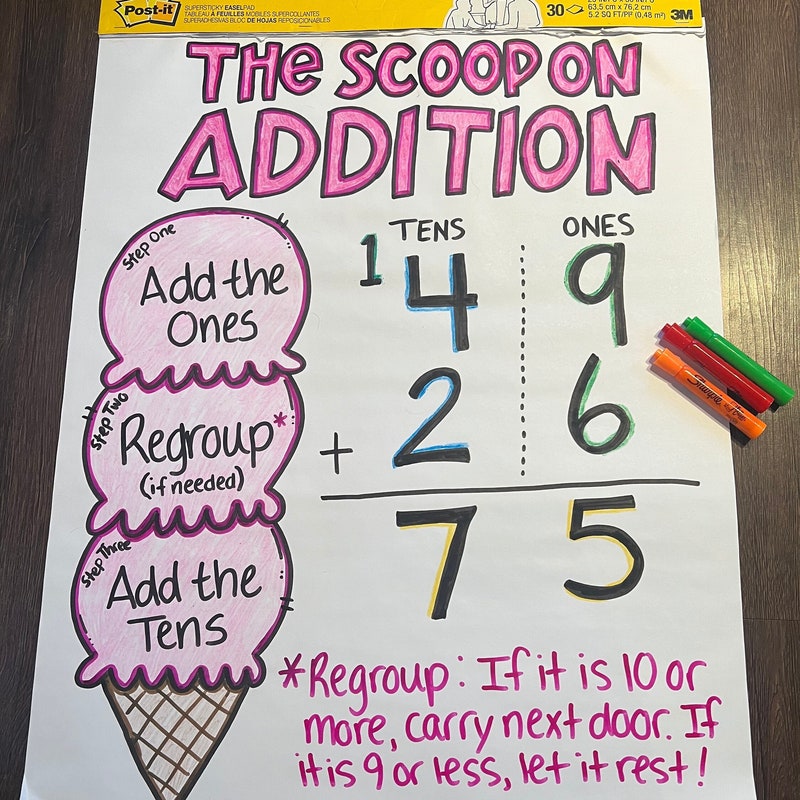 Post-it
SUPERSTICKY EASELPAD
TABLEAU À FEUILLES MOBILES SUPERCOLLANTES
SUPERADHESIVAS BLOC DE HOJAS REPOSICIONABLES
30
63.5 cm x 76,2 cm
5.2 SQ FT/PI² (0,48 m²)
3M
THE SCOOP ON
ADDITION
Step One
Add the
Ones
Step Two
Regroup*
(if needed)
Step Three
Add the
Tens
TENS ONES
1 4 9
+ 2 6
7 5
*Regroup: If it is 10 or
more, carry next door. If
it is 9 or less, let it rest!
Sharpie